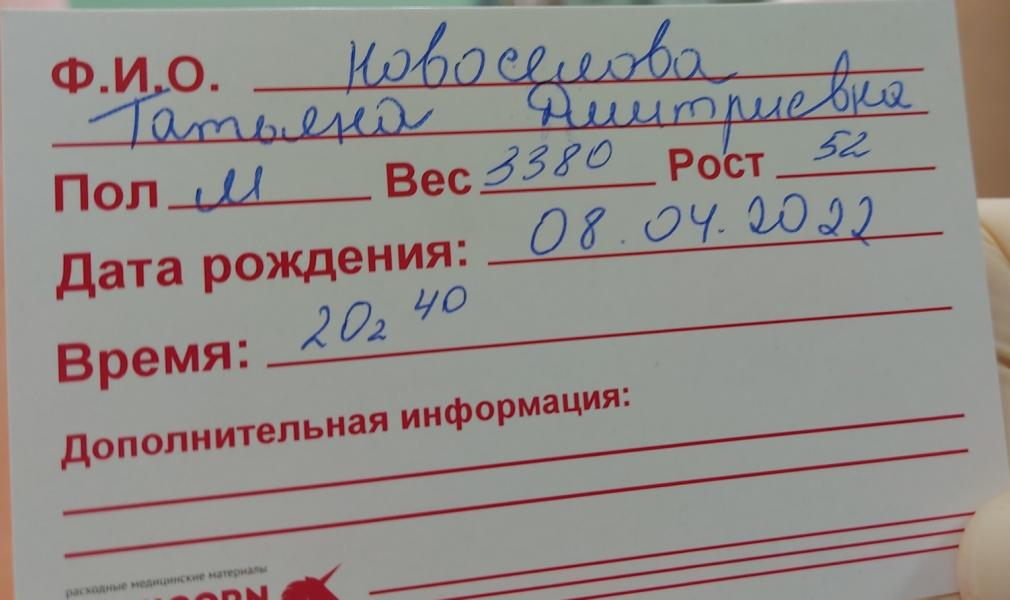 Ф.И.О. Новоселова
Татьяна Дмитриевна
Пол м Вес 3380 Рост 52
Дата рождения: 08.04.2022
Время: 20 2 40
Дополнительная информация:
расходные медицинские материалы